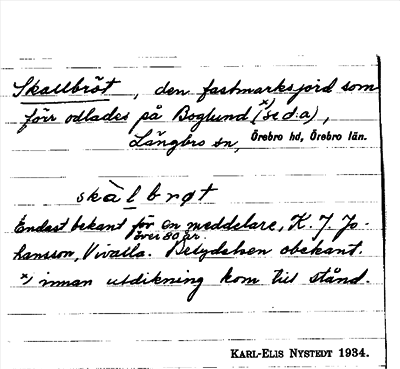 Skallbröt, den fastmarksjord som
förr odlades på Boglund (x) se d.a),
Längbro sn, Örebro hd, Örebro län.
skàl brøt
Endast bekant för en meddelare, K. J. Jo-
över 80 år.
hansson, Vivalla. Betydelsen obekant.
x) innan utdikning kom till stånd.
KARL-ELIS NYSTEDT 1934.